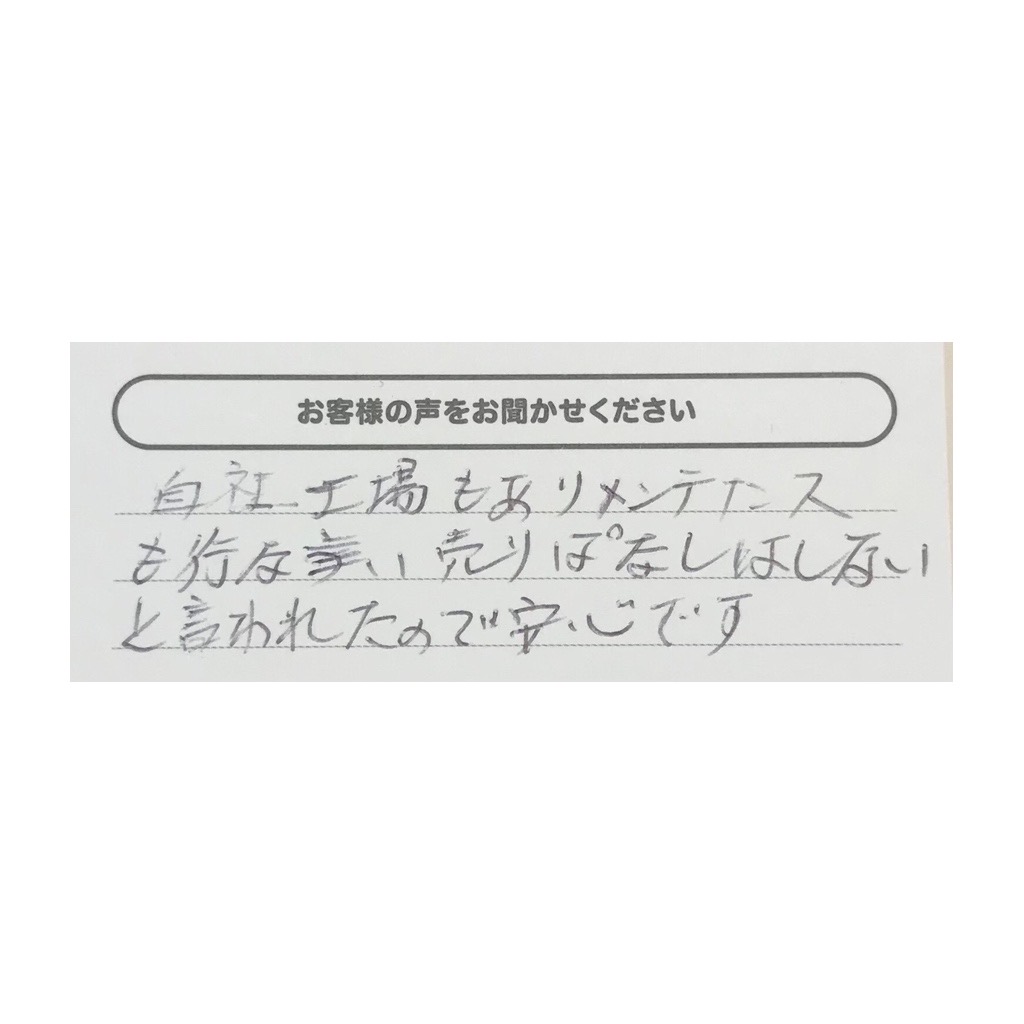 お客様の声をお聞かせください
自社工場もありメンテナンス
も行ない売りぱなしはしない
と言われたので安心です